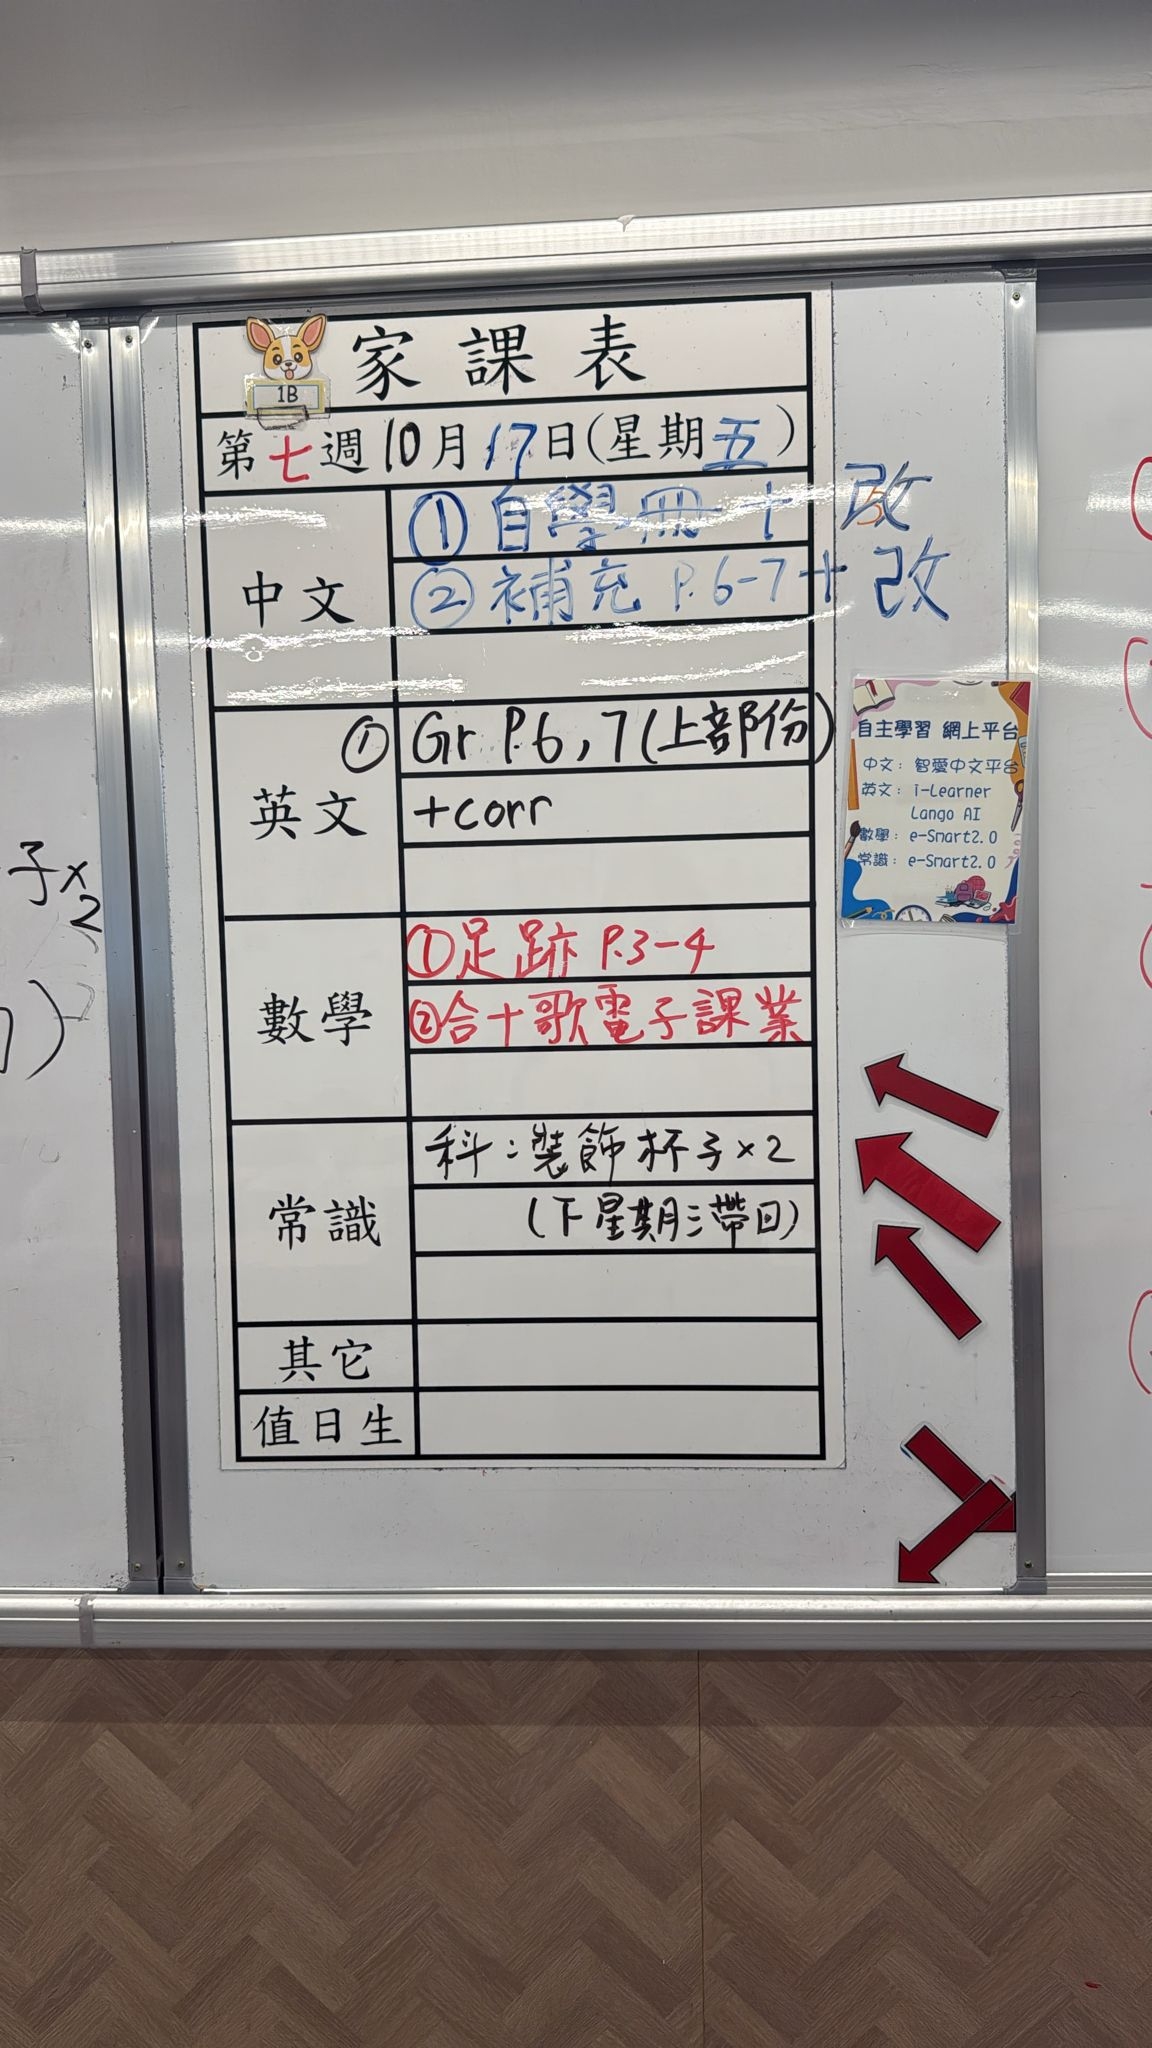 家課表
1B
第七週10月17日(星期五)
中文
①自學冊+改
②補充 P.6-7+改
英文
① Gr P.6,7(上部份)
+corr
數學
①足跡 P.3-4
②合十歌電子課業
常識
科:裝飾杯子×2
(下星期三帶回)
其它
值日生
自主學習 網上平台
中文: 智愛中文平台
英文: i-Learner
Lango AI
數學: e-Smart2.0
常識: e-Smart2.0
子×2